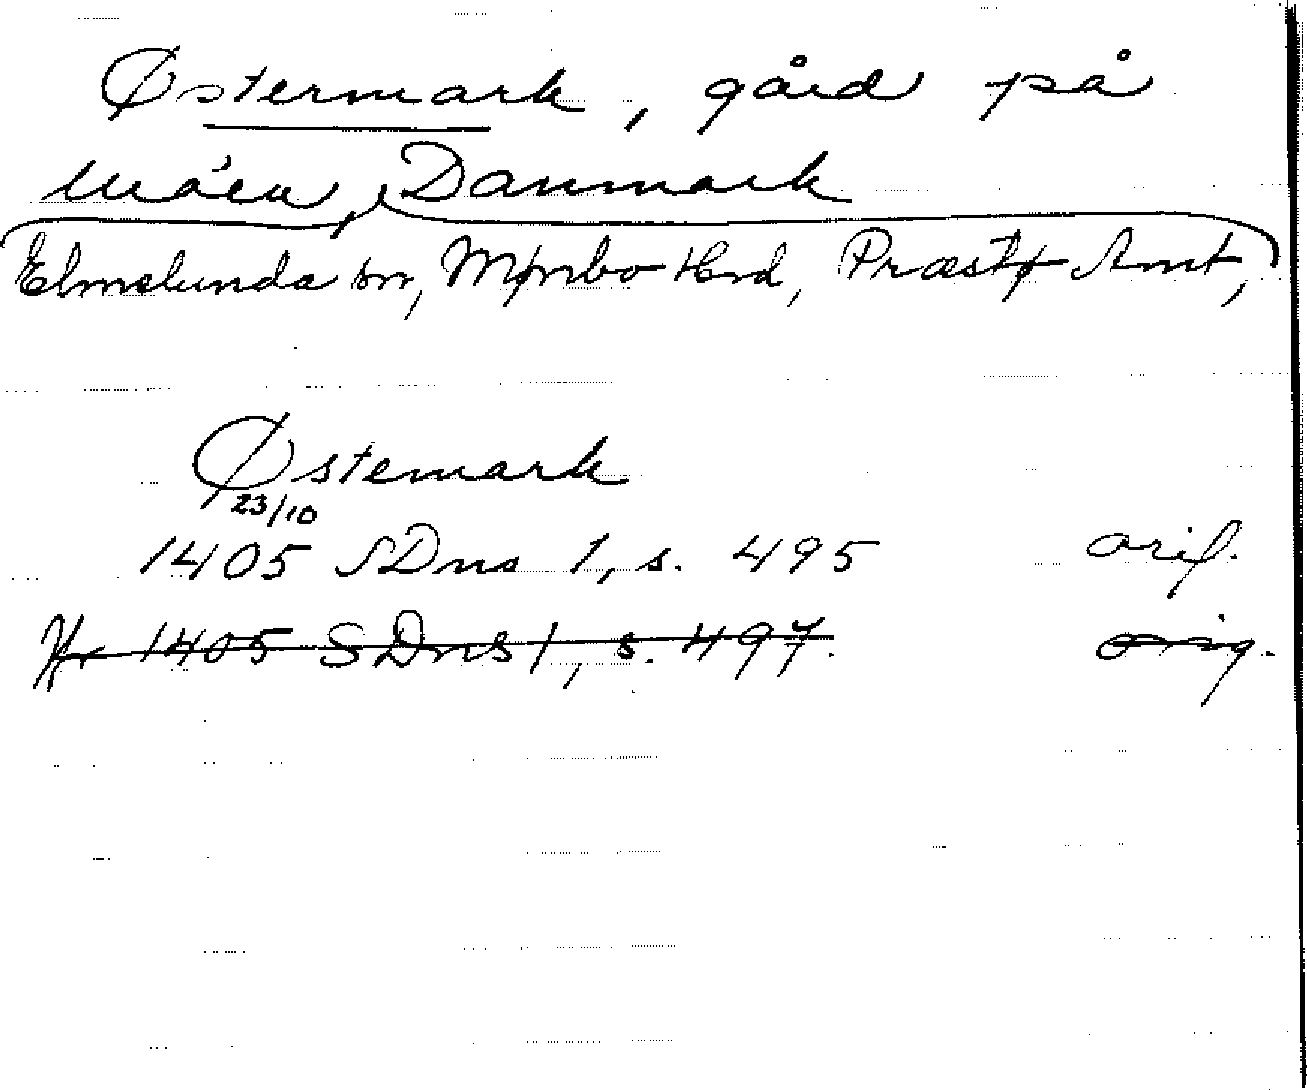 Østermark, gård på
Möen, Danmark
(Elmelunda sn, Mønbo Hrd, Præstø Amt,)
Østemark
23/10
1405 SDns 1, s. 495 orig.
1405 SDns 1, s. 497. orig.